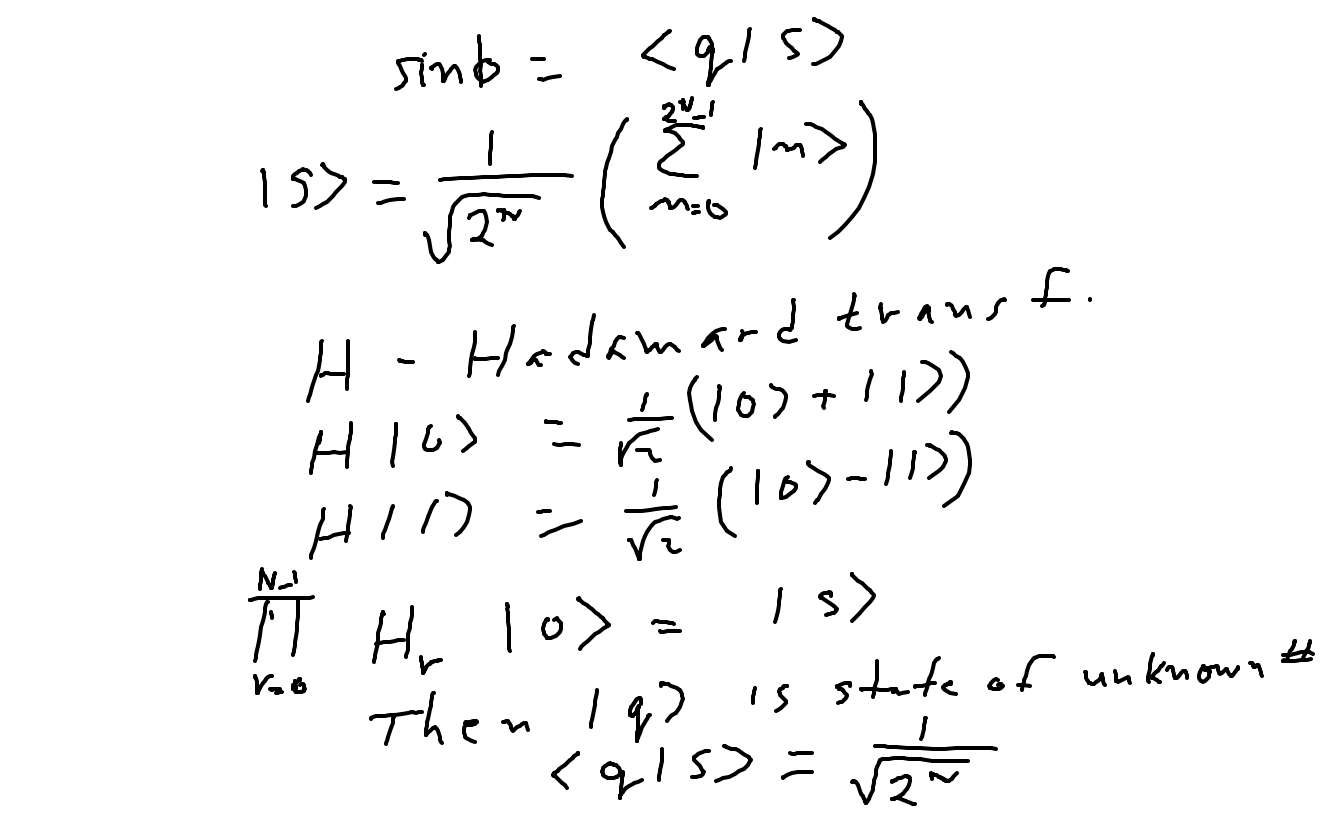 sin b = <q|s>
|s> = 1/√2^N ( ∑_{n=0}^{2^N-1} |n> )
H - Hadamard transf.
H|0> = 1/√2 (|0> + |1>)
H|1> = 1/√2 (|0> - |1>)
∏_{r=0}^{N-1} H_r |0> = |s>
Then |q> is state of unknown #
<q|s> = 1/√2^N